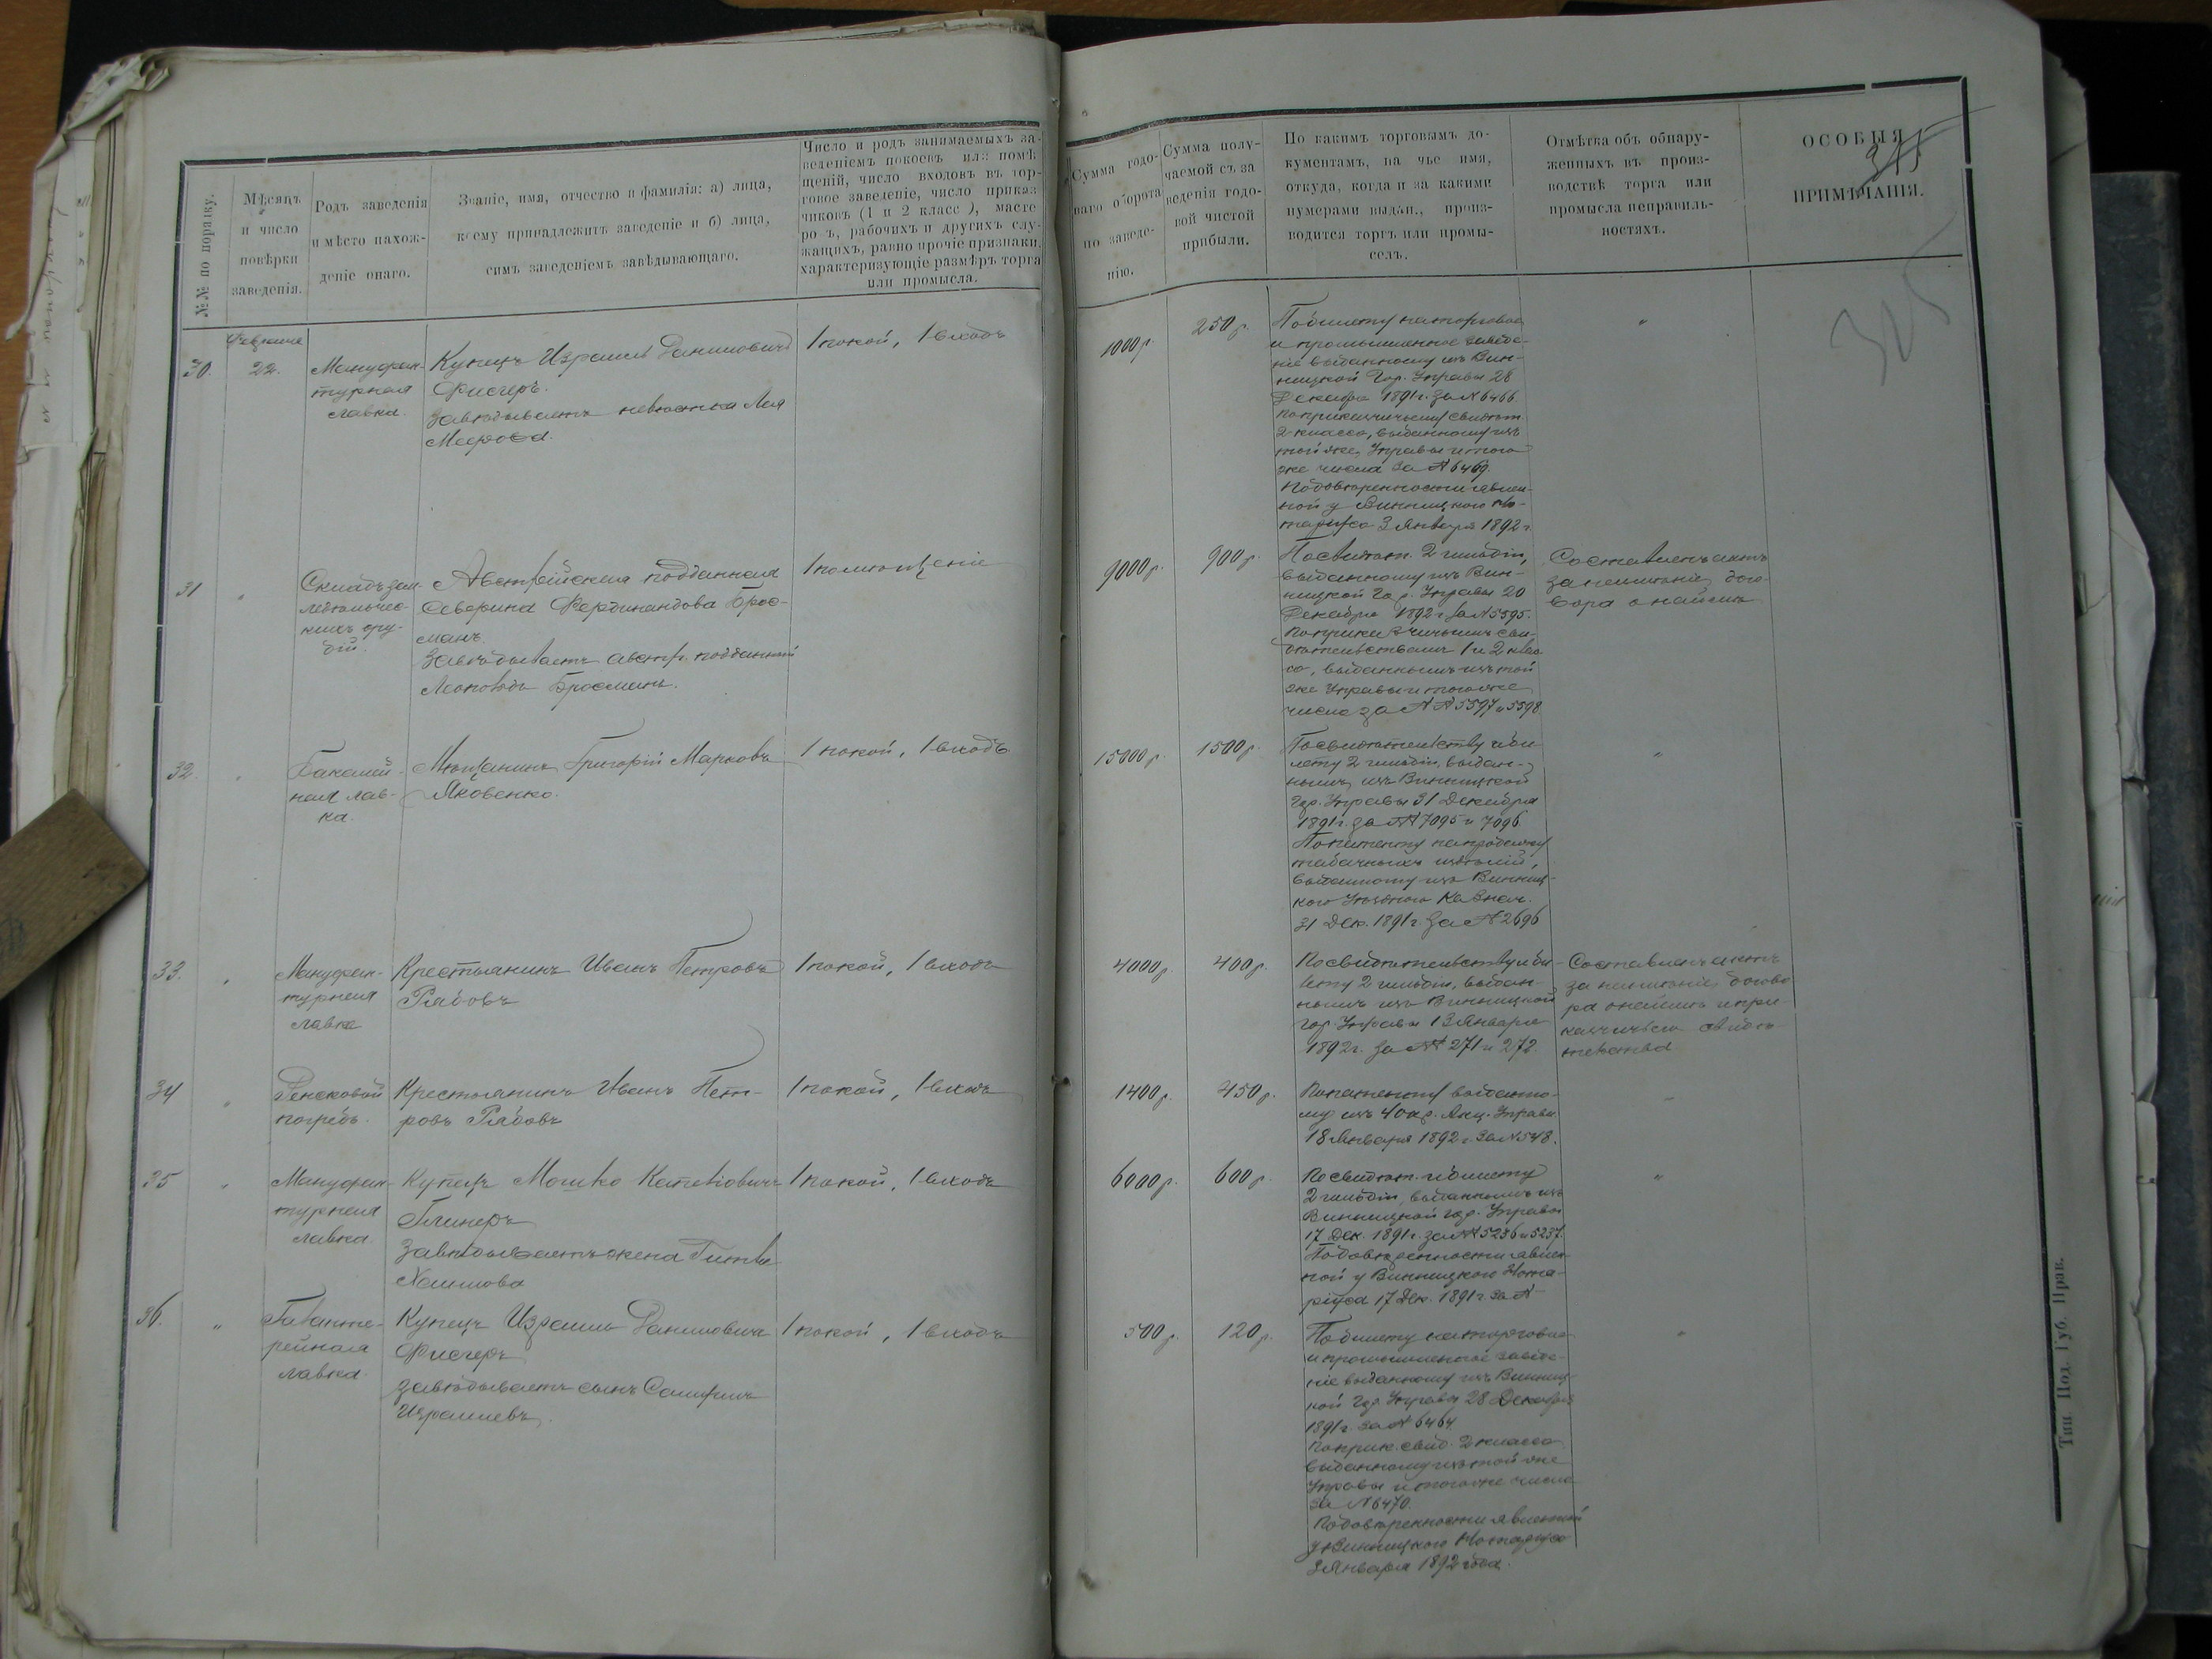 №№ по порядку.
Мѣсяцъ
и число
повѣрки
заведенія.
Родъ заведенія
и мѣсто нахож-
деніе онаго.
Званіе, имя, отчество и фамилія: а) лица,
коему принадлежитъ заведеніе и б) лица,
симъ заведеніемъ завѣдывающаго.
Число и родъ занимаемыхъ за-
веденіемъ покоевъ или помѣ-
щеній, число входовъ въ тор-
говое заведеніе, число приказ
чиковъ (1 и 2 класс ), масте
ро ъ, рабочихъ и другихъ слу-
жащихъ, равно прочіе признаки,
характеризующіе размѣръ торга
или промысла.
Сумма годо-
ваго оборота
по заведе-
нію.
Сумма полу-
чаемой съ за
веденія годо-
вой чистой
прибыли.
По какимъ торговымъ до-
кументамъ, на чье имя,
откуда, когда и за какими
нумерами выдан., произ-
водится торгъ или промы-
селъ.
Отмѣтка объ обнару-
женныхъ въ произ-
водствѣ торга или
промысла неправиль-
ностяхъ.
ОСОБЫЯ
ПРИМѢЧАНІЯ.
305
30.
Февраля
22.
Мануфак-
турная
лавка.
Купецъ Израиль Даниловичъ
Фисгеръ.
Завѣдываетъ невѣстка Лея
Меерова.
1 покой, 1 входъ
1000 р.
250 р.
По билету на торговое
и промышленное заведе-
ніе выданному изъ Вин-
ницкой Гор. Управы 28
Декабря 1891 г. за № 6466.
По приказчичьему свидѣт.
2 класса, выданному изъ
той же Управы и того
же числа за № 6469.
По довѣренности явлен-
ной у Винницкаго Но-
таріуса 3 Января 1892 г.
"
31
"
Складъ зем-
ледѣльчес-
кихъ ору-
дій.
Австрійская подданная
Северина ФердинандоваБрос-
манъ.
Завѣдываетъ австр. подданный
Леопольдъ Бросманъ.
1 помѣщеніе
9000 р.
900 р.
По свидѣт. 2 гильдіи,
выданному изъ Вин-
ницкой Гор. Управы 20
Декабря 1892 г. за № 5595.
По приказчичьимъ сви-
дѣтельствамъ 1 и 2 клас
са, выданнымъ изъ той
же Управы и того же
числа за №№ 5597 и 5598.
Составленъ актъ
за неимѣніе дого-
вора о наймѣ
32.
"
Бакалей-
ная лав-
ка.
Мѣщанинъ Григорій Марковъ
Яковенко.
1 покой, 1 входъ
15000 р.
1500 р.
По свидѣтельству и би
лету 2 гильдіи, выдан-
нымъ изъ Винницкой
Гор. Управы 31 Декабря
1891 г. за №№ 7095 и 7096.
По патенту на продажу
табачныхъ издѣлій,
выданному изъ Винниц-
кого Уѣзднаго Казнач.
31 Дек. 1891 г. за № 2696
"
33.
"
Мануфак-
турная
лавка
Крестьянинъ Иванъ Петровъ
Рябовъ
1 покой, 1 входъ
4000 р.
400 р.
По свидѣтельству и би-
лету 2 гильдіи, выдан-
нымъ изъ Винницкой
Гор. Управы 13 Января
1892 г. за №№ 271 и 272.
Составленъ актъ
за неимѣніе догово
ра о наймѣ и при-
казчичьего свидѣ-
тельства
34
"
Ренсковой
погребъ.
Крестьянинъ Иванъ Пет-
ровъ Рябовъ
1 покой, 1 входъ
1400 р.
450 р.
По патенту выданно-
му изъ 4 окр. Акц. Управы
18 Января 1892 г. за № 548.
35
"
Мануфак-
турная
лавка
Купецъ Мошко
Глинеръ
Завѣдываетъ жена Гитля
Хаимова
1 покой, 1 входъ
6000 р.
600 р.
По свидѣт. и билету
2 гильдіи, выданнымъ изъ
Винницкой Гор. Управы
17 Дек. 1891 г. за №№ 5236 и 5237.
По довѣренности явлен-
ной у Винницкаго Нота-
ріуса 17 Дек. 1891 г. за №
"
36.
"
Галанте-
рейная
лавка.
Купецъ Израиль Даниловичъ
Фисгеръ
завѣдываетъ сынъ
Израилевъ.
1 покой, 1 входъ
500 р.
120 р.
По билету на торговое
и промышленное заведе-
ніе выданному изъ Винниц-
кой Гор. Управы 28 Декабря
1891 г. за № 6464.
По прик. свид. 2 класса
выданному изъ той же
Управы и того же числа
за № 6470.
По довѣренности явленной
у Винницкого Нотаріуса
3 Января 1892 года.
"
Тип. Под. Губ. Прав.